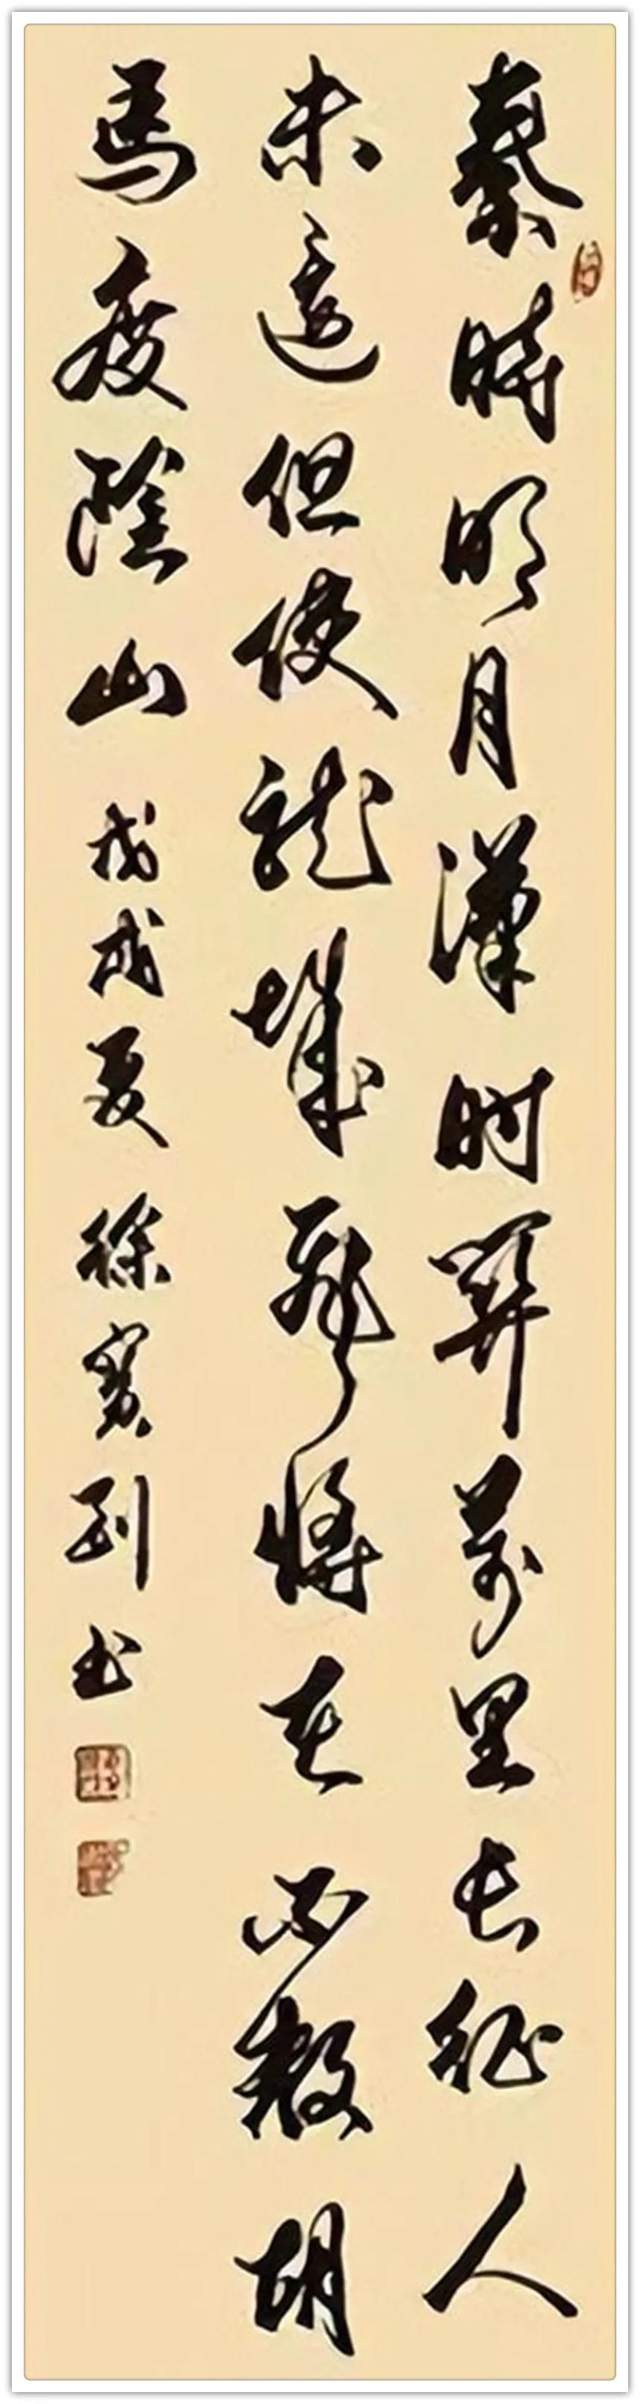 秦時明月漢时關萬里长征人
未還但使龍城飛將在不教胡
馬度陰山 戊戌夏 徐寶书